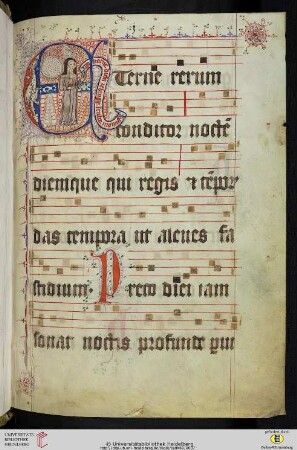 Eterne rerum
conditor noctē
diemque qui regis et tēpor
das tempora ut aleues fa
stidium. Preco diei iam
sonat noctis profunde pui
UNIVERSITÄTS-
BIBLIOTHEK
HEIDELBERG
© Universitätsbibliothek Heidelberg